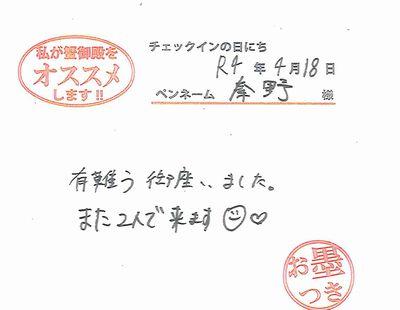 私が蟹御殿を
オススメ
します!!
チェックインの日にち
R4 年 4 月 18 日
ペンネーム 峰野 様
有難う御座いました。
また2人で来ます
お墨
つき